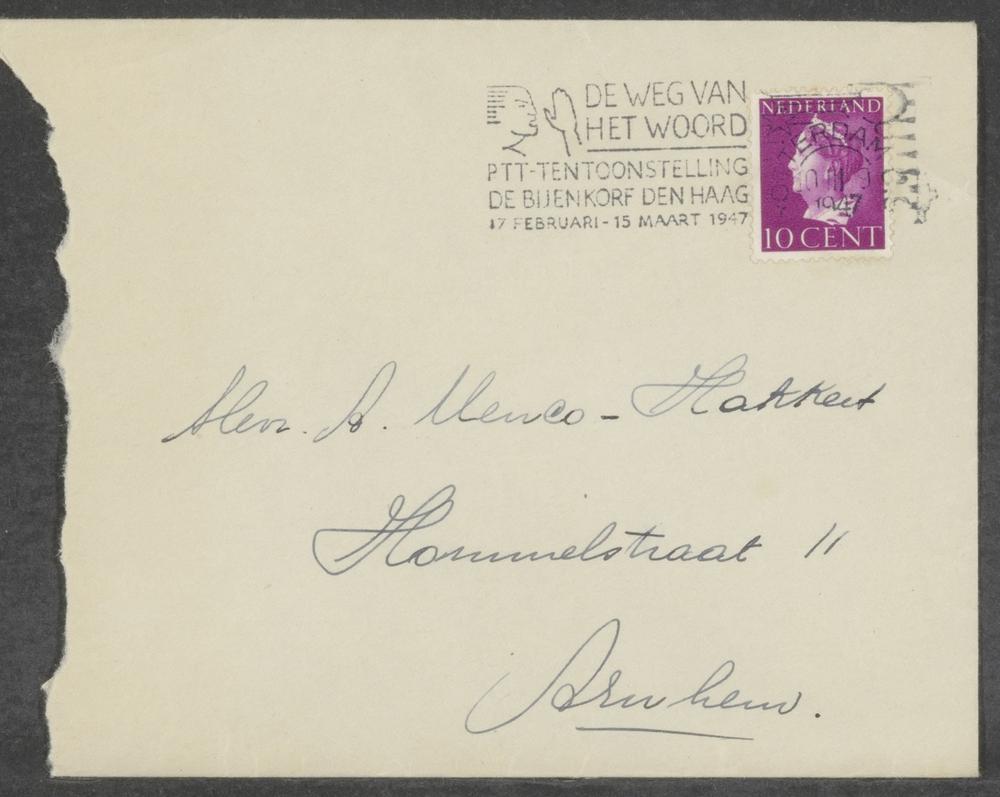 DE WEG VAN
HET WOORD
PTT-TENTOONSTELLING
DE BIJENKORF DEN HAAG
17 FEBRUARI - 15 MAART 1947
NEDERLAND
TERDAM
10 III
1947
10 CENT
Mevr. A. Menco - Hakkert
Hommelstraat 11
Arnhem.